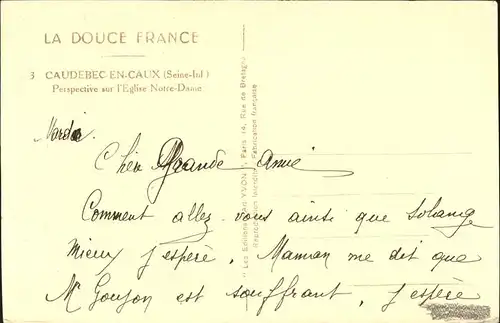 LA DOUCE FRANCE
3 CAUDEBEC-EN-CAUX (Seine-Inf.)
Perspective sur l'Eglise Notre-Dame.
Mardi.
Chère Grande amie
Comment allez-vous ainsi que Solange
Mieux j'espère, Maman me dit que
Mr Goujon est souffrant, j'espère
"Les Editions d'Art YVON" - Paris 14, Rue de Bretagne
Reproduction interdite - Fabrication française